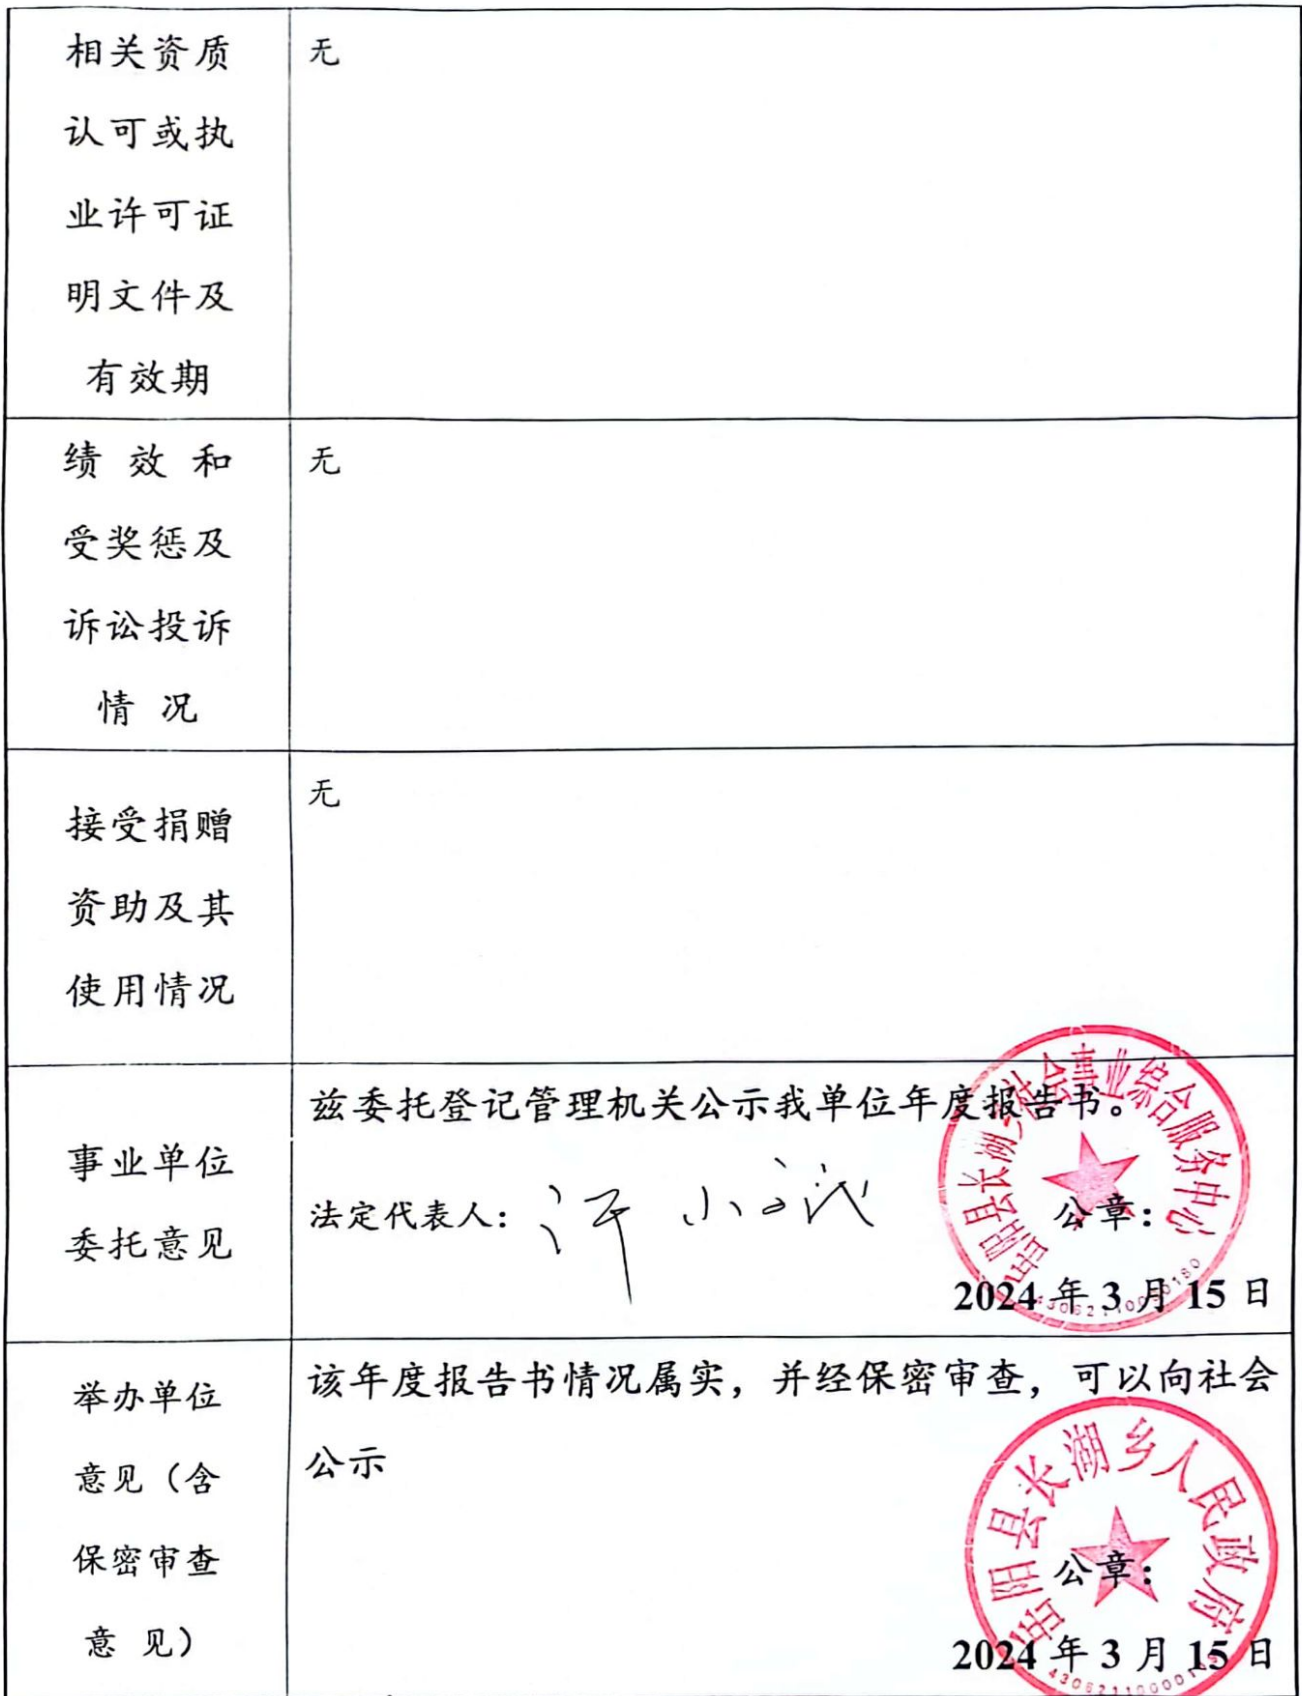 相关资质
认可或执
业许可证
明文件及
有效期
无
绩 效 和
受奖惩及
诉讼投诉
情 况
无
接受捐赠
资助及其
使用情况
无
事业单位
委托意见
兹委托登记管理机关公示我单位年度报告书。
法定代表人：许小武
公章：
2024 年 3 月 15 日
岳阳县长湖乡社会事业综合服务中心
举办单位
意见（含
保密审查
意 见）
该年度报告书情况属实，并经保密审查，可以向社会
公示
公章：
2024 年 3 月 15 日
岳阳县长湖乡人民政府